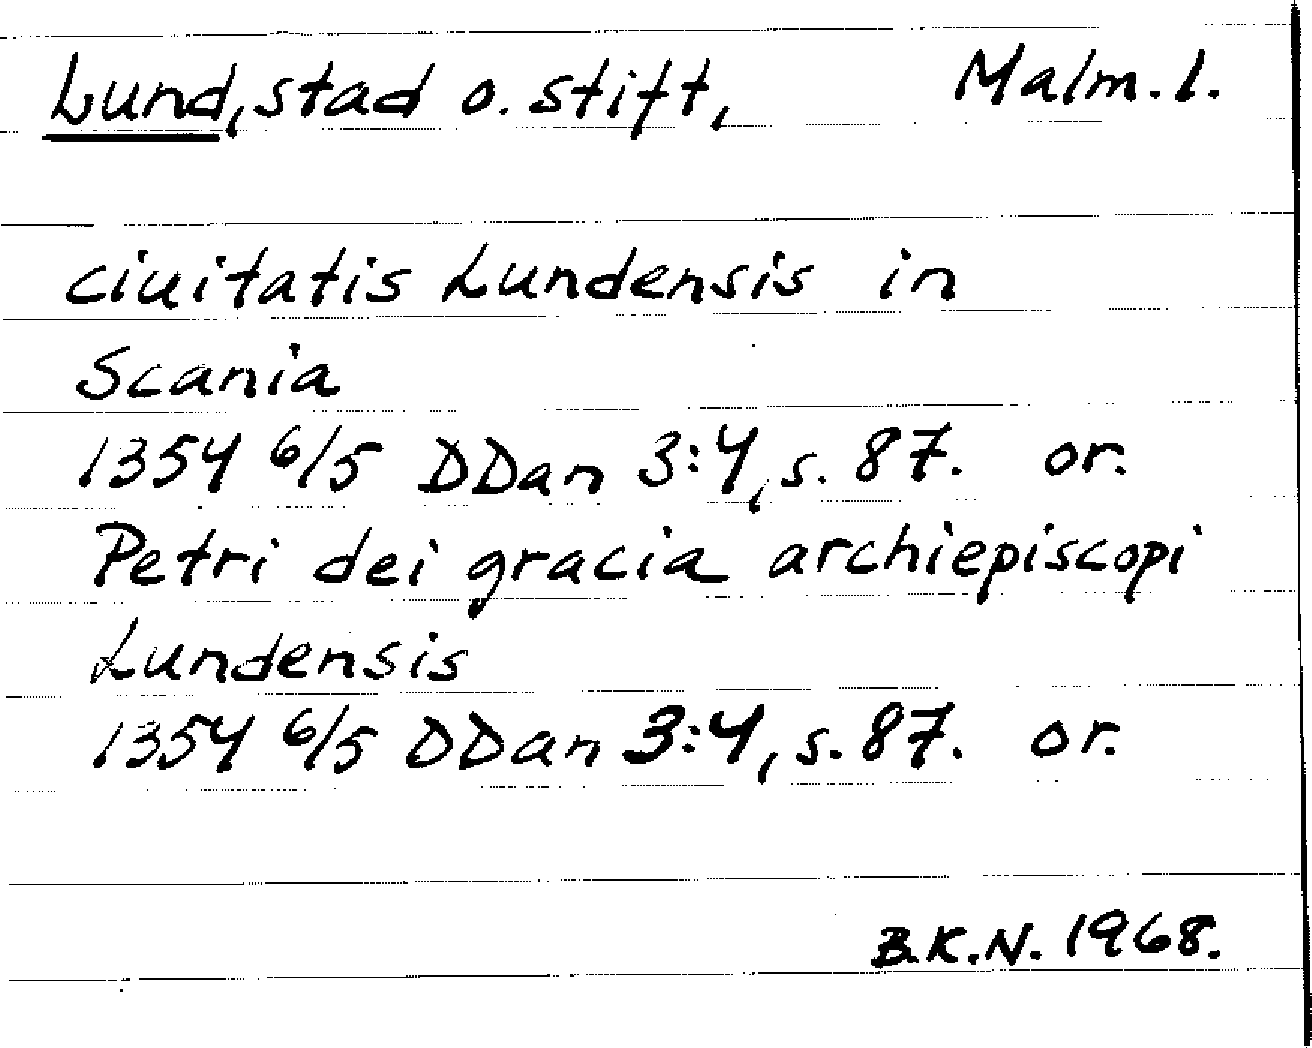 Lund, stad o. stift, Malm. l.
ciuitatis Lundensis in
Scania
1354 6/5 DDan 3:4, s. 87. or.
Petri dei gracia archiepiscopi
Lundensis
1354 6/5 DDan 3:4, s. 87. or.
B.K.N. 1968.